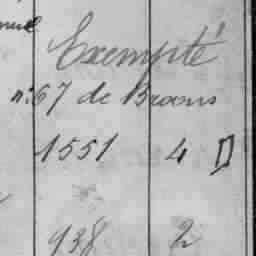 Exempté
n: 67 de Broons
1551 4 D
938 2